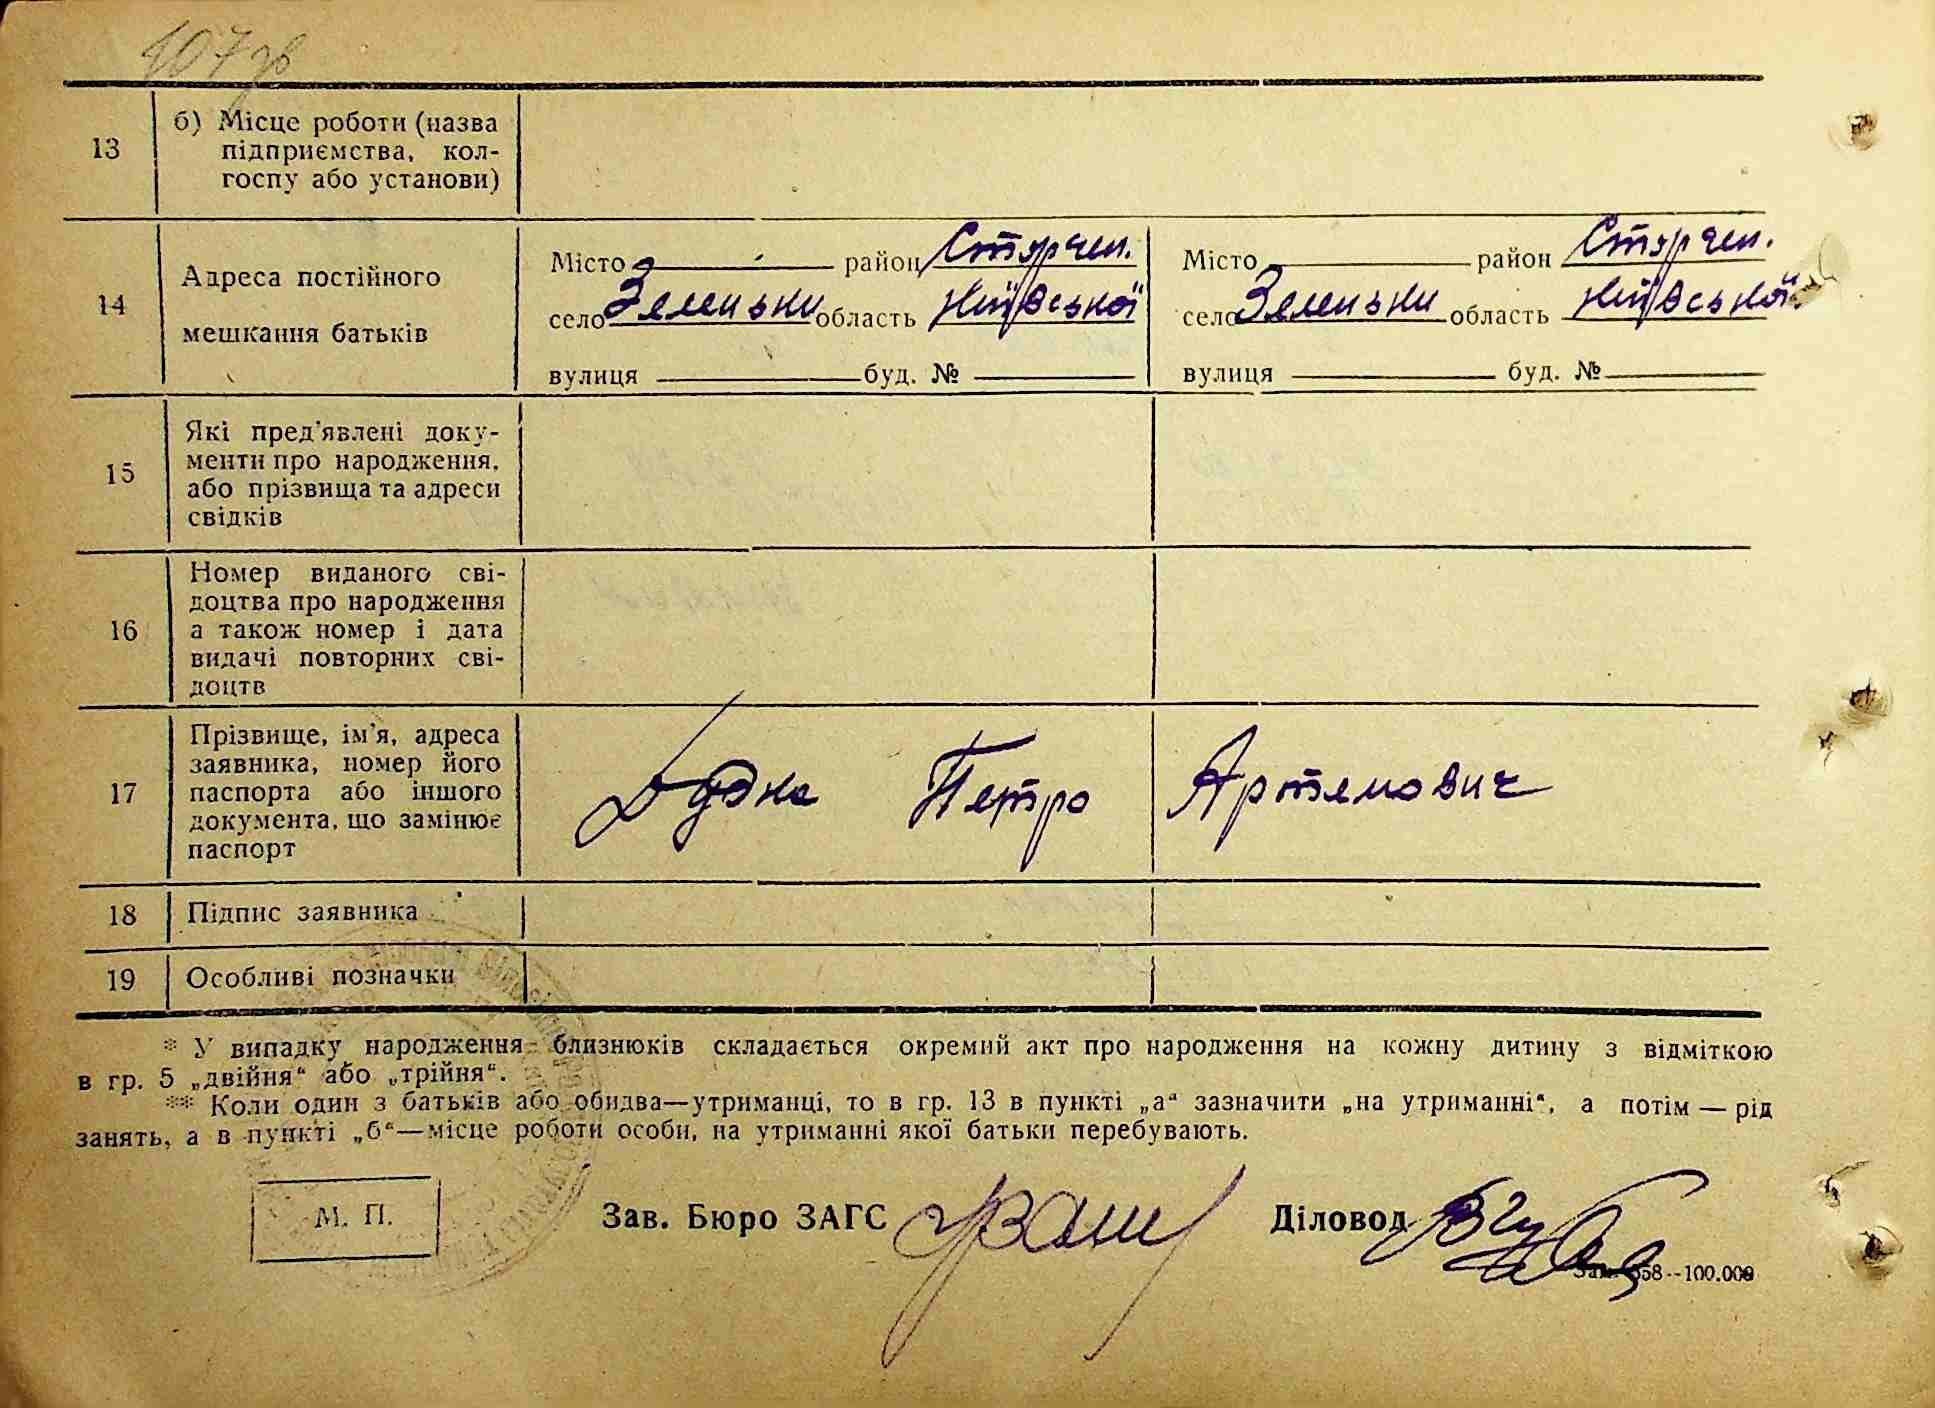 107 зв
13
б) Місце роботи (назва
підприємства, кол-
госпу або установи)
14
Адреса постійного
мешкання батьків
Місто район Стурчен.
село Зеленьки область Київської
вулиця буд. №
Місто район Стурчен.
село Зеленьки область Київської
вулиця буд. №
15
Які пред'явлені доку-
менти про народження,
або прізвища та адреси
свідків
16
Номер виданого сві-
доцтва про народження
а також номер і дата
видачі повторних сві-
доцтв
17
Прізвище, ім'я, адреса
заявника, номер його
паспорта або іншого
документа, що замінює
паспорт
Дудка Петро Артемович
18
Підпис заявника
19
Особливі позначки
* У випадку народження близнюків складається окремий акт про народження на кожну дитину з відміткою
в гр. 5 „двійня“ або „трійня“.
** Коли один з батьків або обидва—утриманці, то в гр. 13 в пункті „а“ зазначити „на утриманні“, а потім — рід
занять, а в пункті „б“—місце роботи особи, на утриманні якої батьки перебувають.
М. П.
Зав. Бюро ЗАГС
Діловод
Зам. 358--100.000